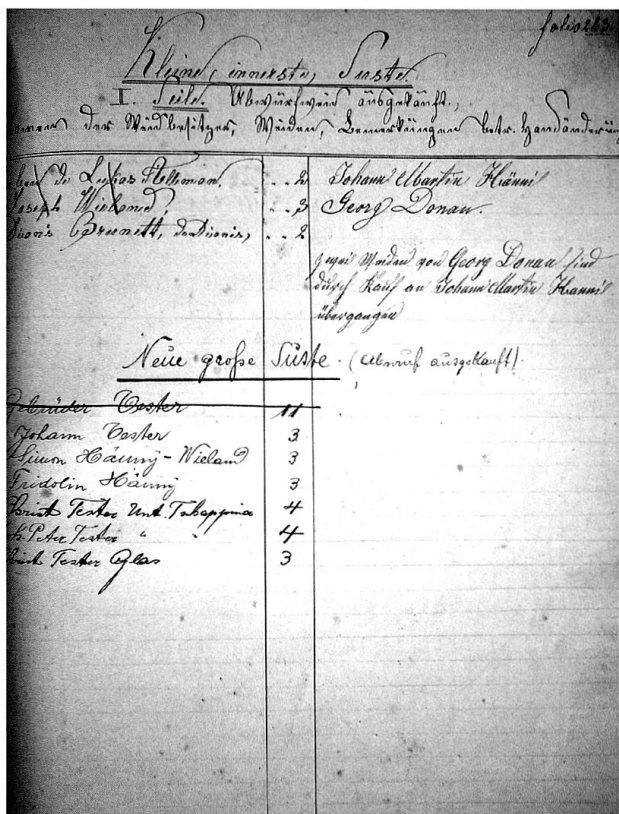 folio 263.
Kleine, innerste, Suste.
I. Teile. Abwurfweid ausgekauft.,
der Weidbesitzer, Weiden, Bemerkungen betr. Handänderung
de Lukas Allemann. . . 2 Johann Martin Hänni
Joseph Wieland, . . 3 Georg Donau.
Brunett, . . 2
zwei Weiden von Georg Donau sind
durch Kauf an Johann Martin Hänni
übergangen
Neue große Suste. (Abwurf ausgekauft).
Gebrüder Tester 11
Johann Tester 3
Simon Hänny-Wieland 3
Fridolin Hänny 3
Tester Unt. Tschappina 4
Peter Tester " " 4
Tester Glas 3